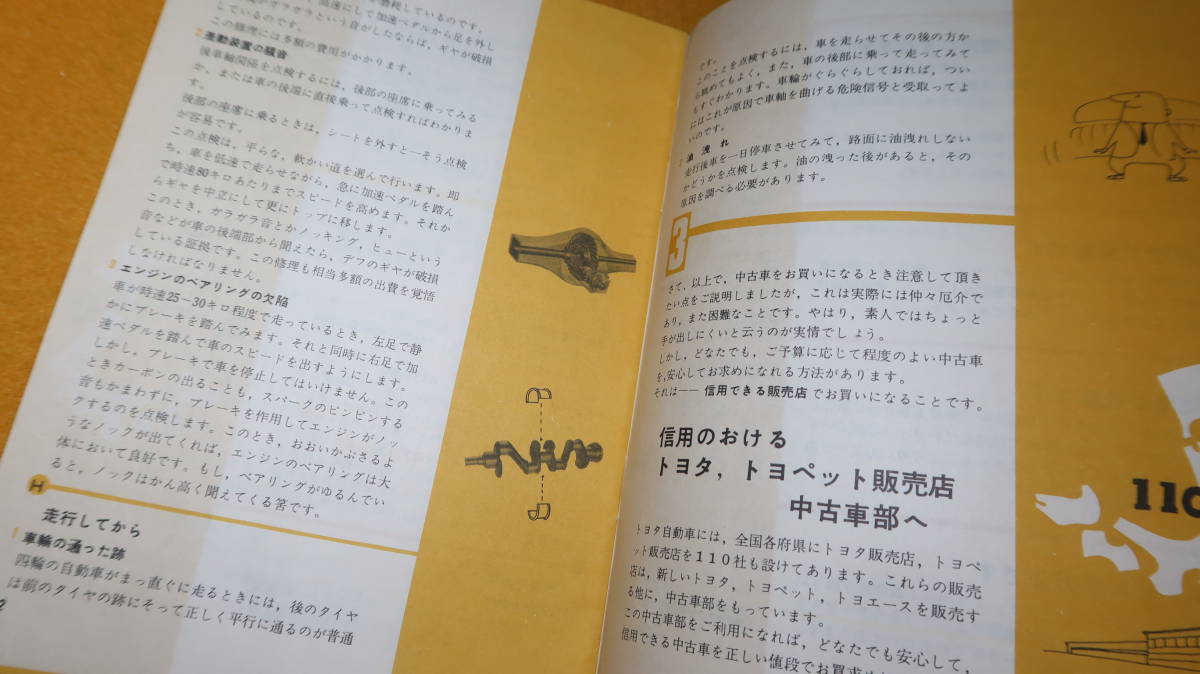 高速にして加速ペダルから足を外し
ガラガラという音がしたならば，ギヤが破損
しているのです。
この修理には多額の費用がかかります。
2 差動装置の騒音
後車輪関係を点検するには，後部の座席に乗ってみる
か，または車の後端に直接乗って点検すればわかりま
す。
後部の座席に乗るときは，シートを外すと一そう点検
が容易です。
この点検は，平らな，軟かい道を選んで行います。即
ち，車を低速で走らせながら，急に加速ペダルを踏ん
で時速80キロあたりまでスピードを高めます。それか
らギヤを中立にして更にトップに移します。
このとき，ガラガラ音とかノッキング，ヒューという
音などが車の後端部から聞えたら，デフのギヤが破損
している証拠です。この修理も相当多額の出費を覚悟
しなければなりません。
3 エンジンのベアリングの欠陥
車が時速25〜30キロ程度で走っているとき，左足で静
かにブレーキを踏んでみます。それと同時に右足で加
速ペダルを踏んで車のスピードを出すようにします。
しかし，ブレーキで車を停止してはいけません。この
ときカーボンの出ることも，スパークのピンピンする
音もかまわずに，ブレーキを作用してエンジンがノッ
クするのを点検します。このとき，おおいかぶさるよ
うなノックが出てくれば，エンジンのベアリングは大
体において良好です。もし，ベアリングがゆるんでい
ると，ノックはかん高く聞えてくる筈です。
H
走行してから
1 車輪の通った跡
四輪の自動車がまっ直ぐに走るときには，後のタイヤ
は前のタイヤの跡にそって正しく平行に通るのが普通
2
です。
このことを点検するには，車を走らせてその後の方か
ら眺めてもよく，また，車の後部に乗って走ってみて
もすぐわかります。車輪がぐらぐらしておれば，つい
にはこれが原因で車軸を曲げる危険信号と受取ってよ
いのです。
油洩れ
走行後車を一日停車させてみて，路面に油洩れしない
かどうかを点検します。油の洩った後があると，その
原因を調べる必要があります。
3
さて，以上で，中古車をお買いになるとき注意して頂き
たい点をご説明しましたが，これは実際には仲々厄介で
あり，また困難なことです。やはり，素人ではちょっと
手が出しにくいと云うのが実情でしょう。
しかし，どなたでも，ご予算に応じて程度のよい中古車
を，安心してお求めになれる方法があります。
それは── 信用できる販売店 でお買いになることです。
信用のおける
トヨタ，トヨペット販売店
中古車部へ
トヨタ自動車には，全国各府県にトヨタ販売店，トヨペ
ット販売店を110社も設けてあります。これらの販売
店は，新しいトヨタ，トヨペット，トヨエースを販売す
る他に，中古車部をもっています。
この中古車部をご利用になれば，どなたでも安心して，
信用できる中古車を正しい値段でお買求め
110